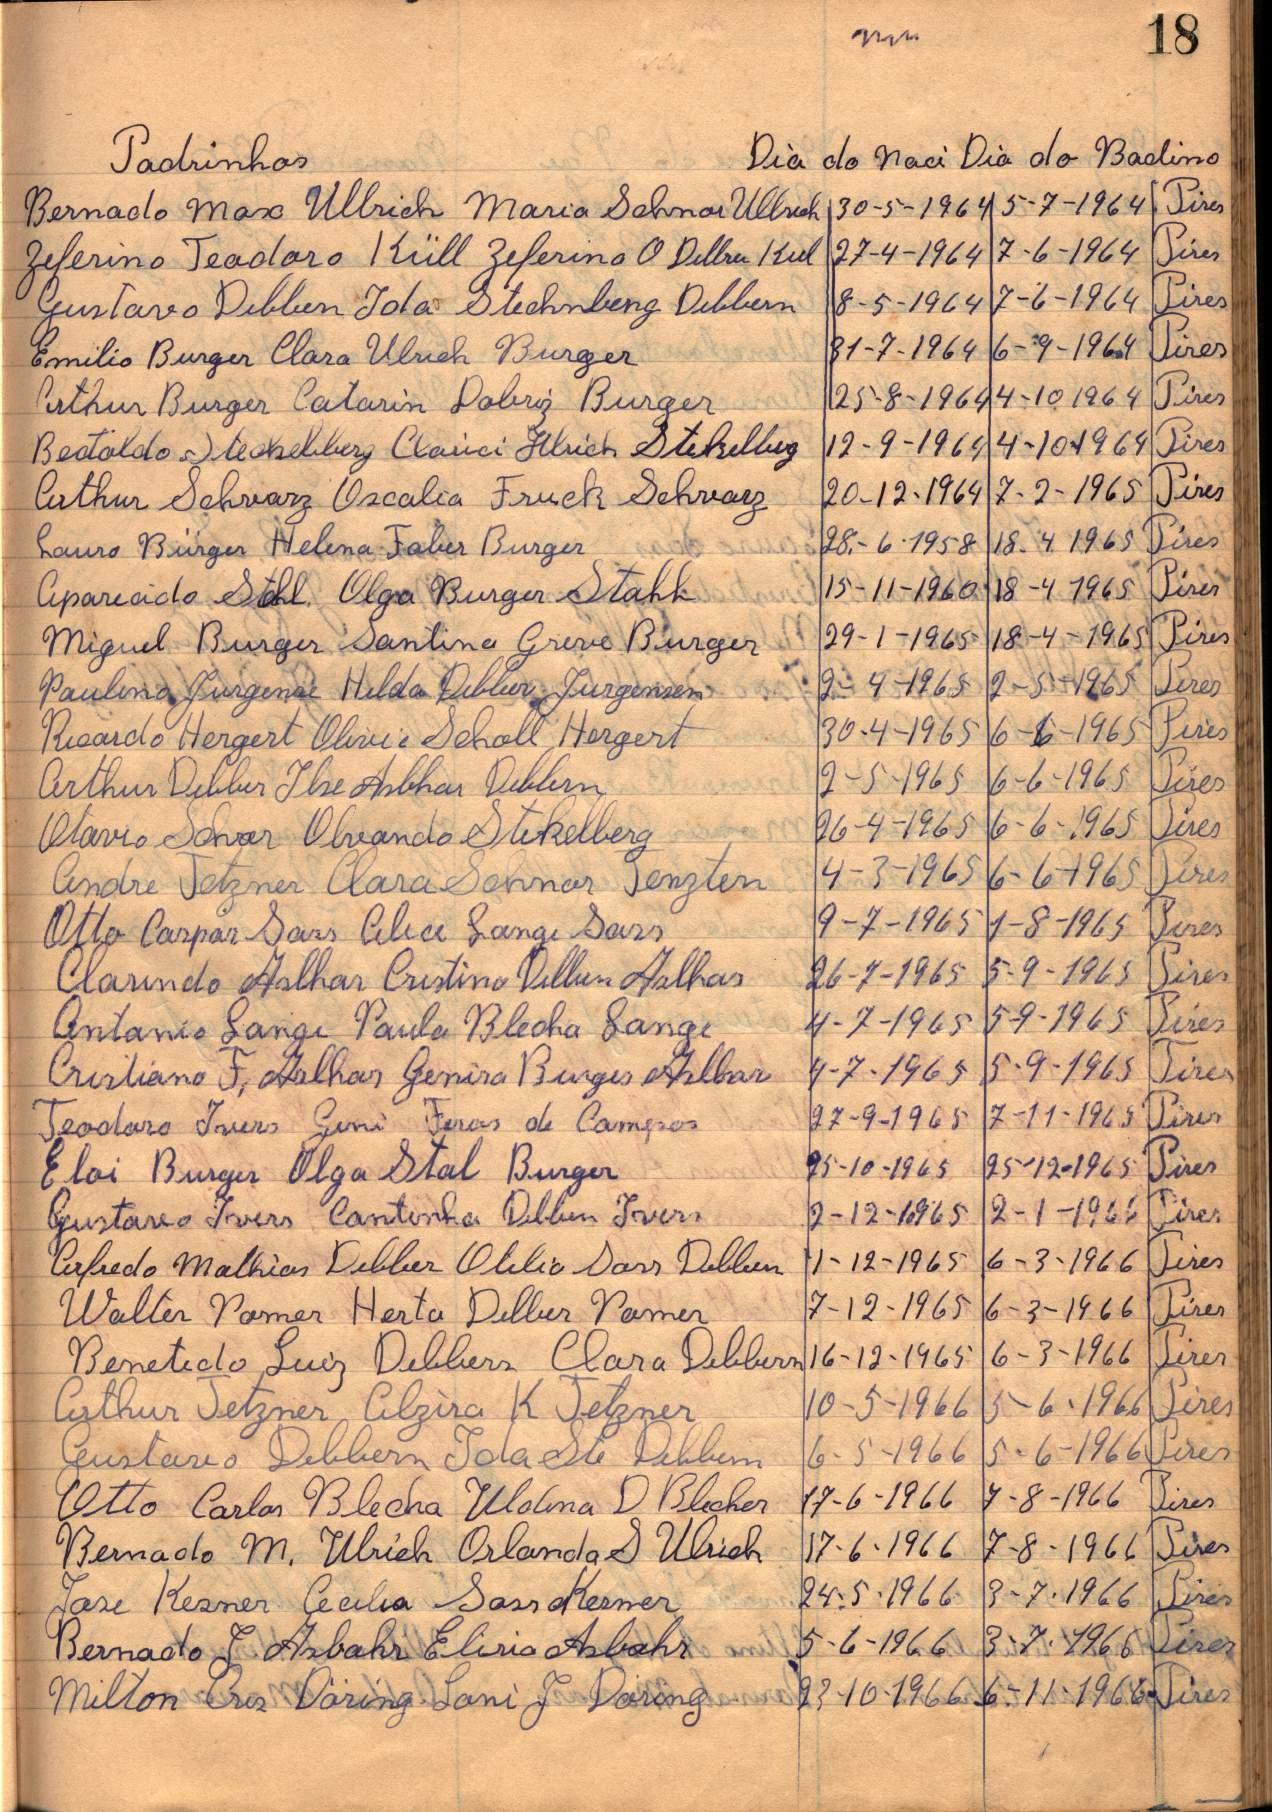 18
Padrinhos Dia do Naci Dia do Batismo
Bernado Max Ullrich Maria Schnor Ullrich 30-5-1964 5-7-1964 Pires
Zeferino Teodoro Küll Zeferina O Dibbern Kül 27-4-1964 7-6-1964 Pires
Gustavo Dibbern Ida Stechnberg Dibbern 8-5-1964 7-6-1964 Pires
Emilio Burger Clara Ulrich Burger 31-7-1964 6-9-1964 Pires
Arthur Burger Catarin Dobriz Burger 25-8-1964 4-10 1964 Pires
Steckelberg Ulrich Stekelberg 12-9-1964 4-10-1964 Pires
Arthur Schvarz Oscalia Fruck Schvarz 20-12-1964 7-2-1965 Pires
Lauro Bürger Helena Faber Burger 28-6-1958 18-4 1965 Pires
Aparecido Stahl Olga Burger Stahl 15-11-1960 18-4 1965 Pires
Miguel Burger Santina Greve Burger 29-1-1965 18-4-1965 Pires
Paulino Jurgense Hilda Dibber Jurgensen 2-4-1965 2-5-1965 Pires
Ricardo Hergert Olivia Scholl Hergert 30-4-1965 6-6-1965 Pires
Arthur Dibber Ilse Asbhar Dibbern 2-5-1965 6-6-1965 Pires
Otavio Schvar Olvando Stekelberg 26-4-1965 6-6-1965 Pires
Andre Jetzner Clara Schnor 4-3-1965 6-6-1965 Pires
Otto Carpar Sass Alice Lange Sass 9-7-1965 1-8-1965 Pires
Clarindo Asbhar Cristina Dibbern Asbhar 26-7-1965 5-9-1965 Pires
Antonio Lange Paula Blecha Lange 4-7-1965 5-9-1965 Pires
Cristiano F. Asbhar Genira Burger Asbhar 4-7-1965 5-9-1965 Pires
Teodoro Ivers Geni Feras de Campos 27-9-1965 7-11-1965 Pires
Eloi Burger Olga Stal Burger 25-10-1965 25-12-1965 Pires
Gustavo Ivers Cantinha Dibbern Ivers 2-12-1965 2-1-1966 Pires
Alfredo Mathias Dibber Otilia Sass Dibbern 1-12-1965 6-3-1966 Pires
Walter Pomer Herta Dibber Pomer 7-12-1965 6-3-1966 Pires
Benetido Luiz Dibbern Clara Dibbern 16-12-1965 6-3-1966 Pires
Arthur Jetzner Alzira K Jetzner 10-5-1966 5-6-1966 Pires
Gustavo Dibbern Ida Ste Dibbern 6-5-1966 5-6-1966 Pires
Otto Carlos Blecha Uldina D Blecher 17-6-1966 7-8-1966 Pires
Bernado M. Ulrich Orlanda S Ulrich 17-6-1966 7-8-1966 Pires
Jose Kesner Cecilia Sass Kesner 24-5-1966 3-7-1966 Pires
Bernado J Asbahr Eliria Asbahr 5-6-1966 3-7-1966 Pires
Milton Döring Loni J Döring 23-10-1966 6-11-1966 Pires